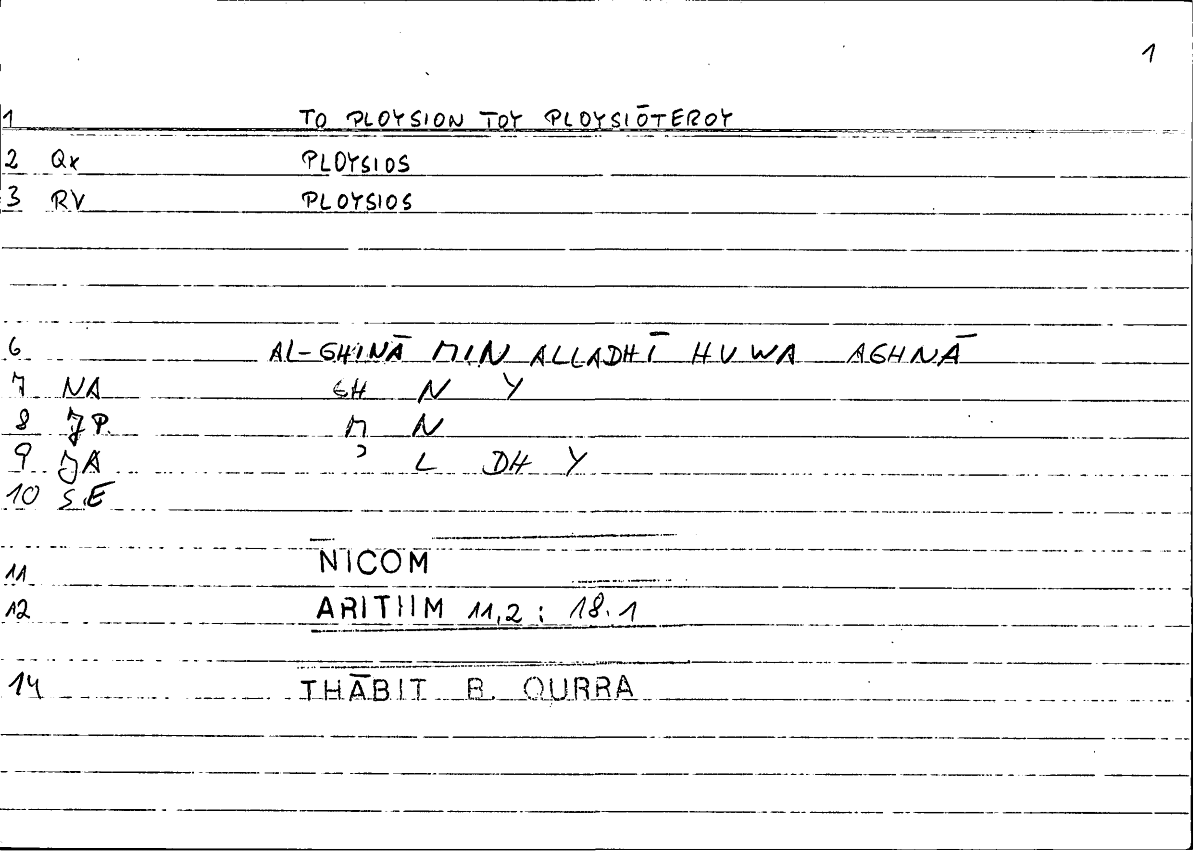 1
1 TO PLOYSION TOY PLOYSIŌTEROY
2 Qx PLOYSIOS
3 RV PLOYSIOS
6 AL-GHINĀ MIN ALLADHĪ HUWA AGHNĀ
7 NA GH N Y
8 JP. M N
9 JA ʾ L DH Y
10 S.E
11 NICOM
12 ARITHM 11,2 : 18.1
14 THĀBIT B. QURRA